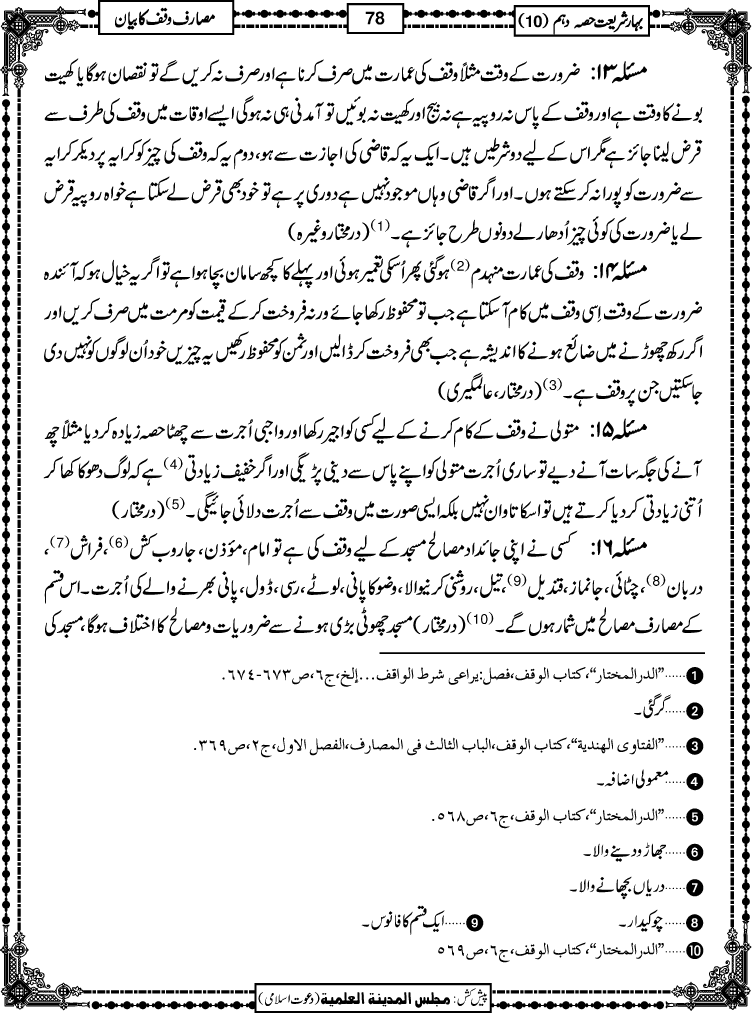 بہارِ شریعت حصہ دہم (10)
78
مصارف وقف کا بیان
مسئلہ ۱۳: ضرورت کے وقت مثلاً وقف کی عمارت میں صرف کرنا ہے اور صرف نہ کریں گے تو نقصان ہوگا یا کھیت
بونے کا وقت ہے اور وقف کے پاس نہ روپیہ ہے نہ بیج اور کھیت نہ بوئیں تو آمدنی ہی نہ ہوگی ایسے اوقات میں وقف کی طرف سے
قرض لینا جائز ہے مگر اس کے لیے دو شرطیں ہیں۔ ایک یہ کہ قاضی کی اجازت سے ہو، دوم یہ کہ وقف کی چیز کو کرایہ پر دیکر کرایہ
سے ضرورت کو پورا نہ کر سکتے ہوں۔ اور اگر قاضی وہاں موجود نہیں ہے دوری پر ہے تو خود بھی قرض لے سکتا ہے خواہ روپیہ قرض
لے یا ضرورت کی کوئی چیز اُدھار لے دونوں طرح جائز ہے۔(1) (درمختار وغیرہ)
مسئلہ ۱۴: وقف کی عمارت منہدم(2) ہوگئی پھر اُسکی تعمیر ہوئی اور پہلے کا کچھ سامان بچا ہوا ہے تو اگر یہ خیال ہو کہ آئندہ
ضرورت کے وقت اِسی وقف میں کام آسکتا ہے جب تو محفوظ رکھا جائے ورنہ فروخت کرکے قیمت کو مرمت میں صرف کریں اور
اگر رکھ چھوڑنے میں ضائع ہونے کا اندیشہ ہے جب بھی فروخت کر ڈالیں اور ثمن کو محفوظ رکھیں یہ چیزیں خود اُن لوگوں کو نہیں دی
جاسکتیں جن پر وقف ہے۔(3) (درمختار، عالمگیری)
مسئلہ ۱۵: متولی نے وقف کے کام کرنے کے لیے کسی کو اجیر رکھا اور واجبی اُجرت سے چھٹا حصہ زیادہ کر دیا مثلاً چھ
آنے کی جگہ سات آنے دیے تو ساری اُجرت متولی کو اپنے پاس سے دینی پڑیگی اور اگر خفیف زیادتی(4) ہے کہ لوگ دھوکا کھا کر
اُتنی زیادتی کر دیا کرتے ہیں تو اسکا تاوان نہیں بلکہ ایسی صورت میں وقف سے اُجرت دلائی جائیگی۔(5) (درمختار)
مسئلہ ۱۶: کسی نے اپنی جائداد مصالح مسجد کے لیے وقف کی ہے تو امام، مؤذن، جاروب کش(6)، فراش(7)،
دربان(8)، چٹائی، جانماز، قندیل(9)، تیل، روشنی کرنیوالا، وضو کا پانی، لوٹے، رسی، ڈول، پانی بھرنے والے کی اُجرت۔ اس قسم
کے مصارف مصالح میں شمار ہوں گے۔(10) (درمختار) مسجد چھوٹی بڑی ہونے سے ضروریات و مصالح کا اختلاف ہوگا، مسجد کی
1 ......”الدرالمختار“، کتاب الوقف، فصل: یراعی شرط الواقف... إلخ، ج٦، ص٦٧٣-٦٧٤.
2 ......گرگئی۔
3 ......”الفتاوی الهندیة“، کتاب الوقف، الباب الثالث فی المصارف، الفصل الاول، ج٢، ص٣٦٩.
4 ......معمولی اضافہ۔
5 ......”الدرالمختار“، کتاب الوقف، ج٦، ص٥٦٨.
6 ......جھاڑو دینے والا۔
7 ......دریاں بچھانے والا۔
8 ......چوکیدار۔ 9 ......ایک قسم کا فانوس۔
10 ......”الدرالمختار“، کتاب الوقف، ج٦، ص٥٦٩
پیش کش: مجلس المدینة العلمیة (دعوت اسلامی)